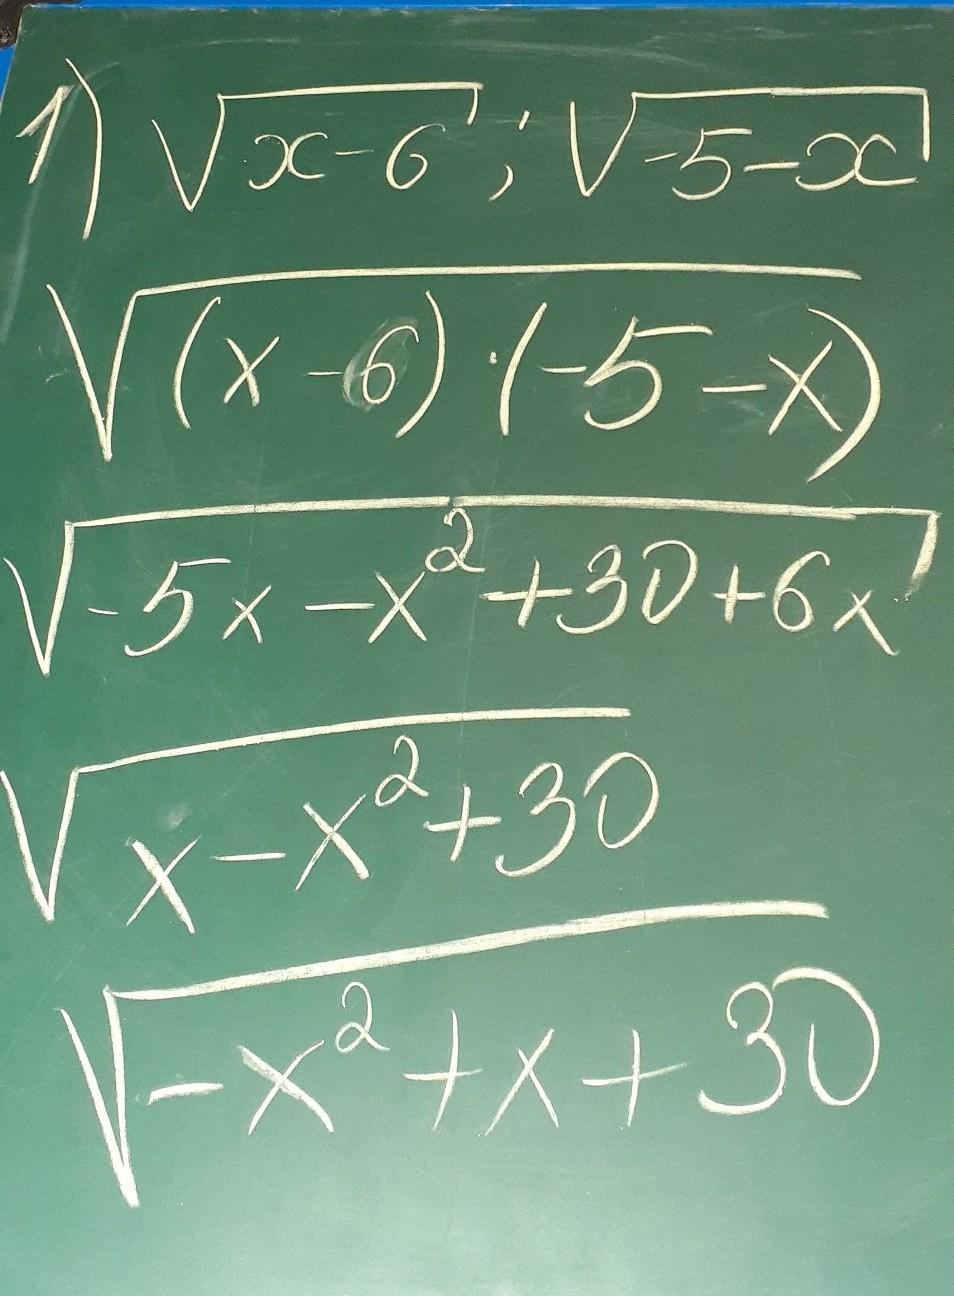 1) √x-6 ; √-5-x
√(x-6)·(-5-x)
√-5x-x²+30+6x
√x-x²+30
√-x²+x+30